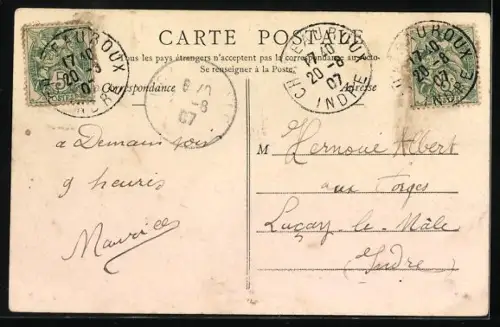 CARTE POSTALE
Tous les pays étrangers n'acceptent pas la correspondance au recto
Se renseigner à la Poste.
Correspondance
Adresse
CHATEAUROUX
17 40
20 -8
07
INDRE
CHATEAUROUX
17 40
20 -8
07
INDRE
CHATEAUROUX
17 40
20 -8
07
INDRE
-8
07
5
a Demain soir
9 heures
Maurice
M Hernoué Albert
aux Forges
Luçay-le-Mâle
Indre